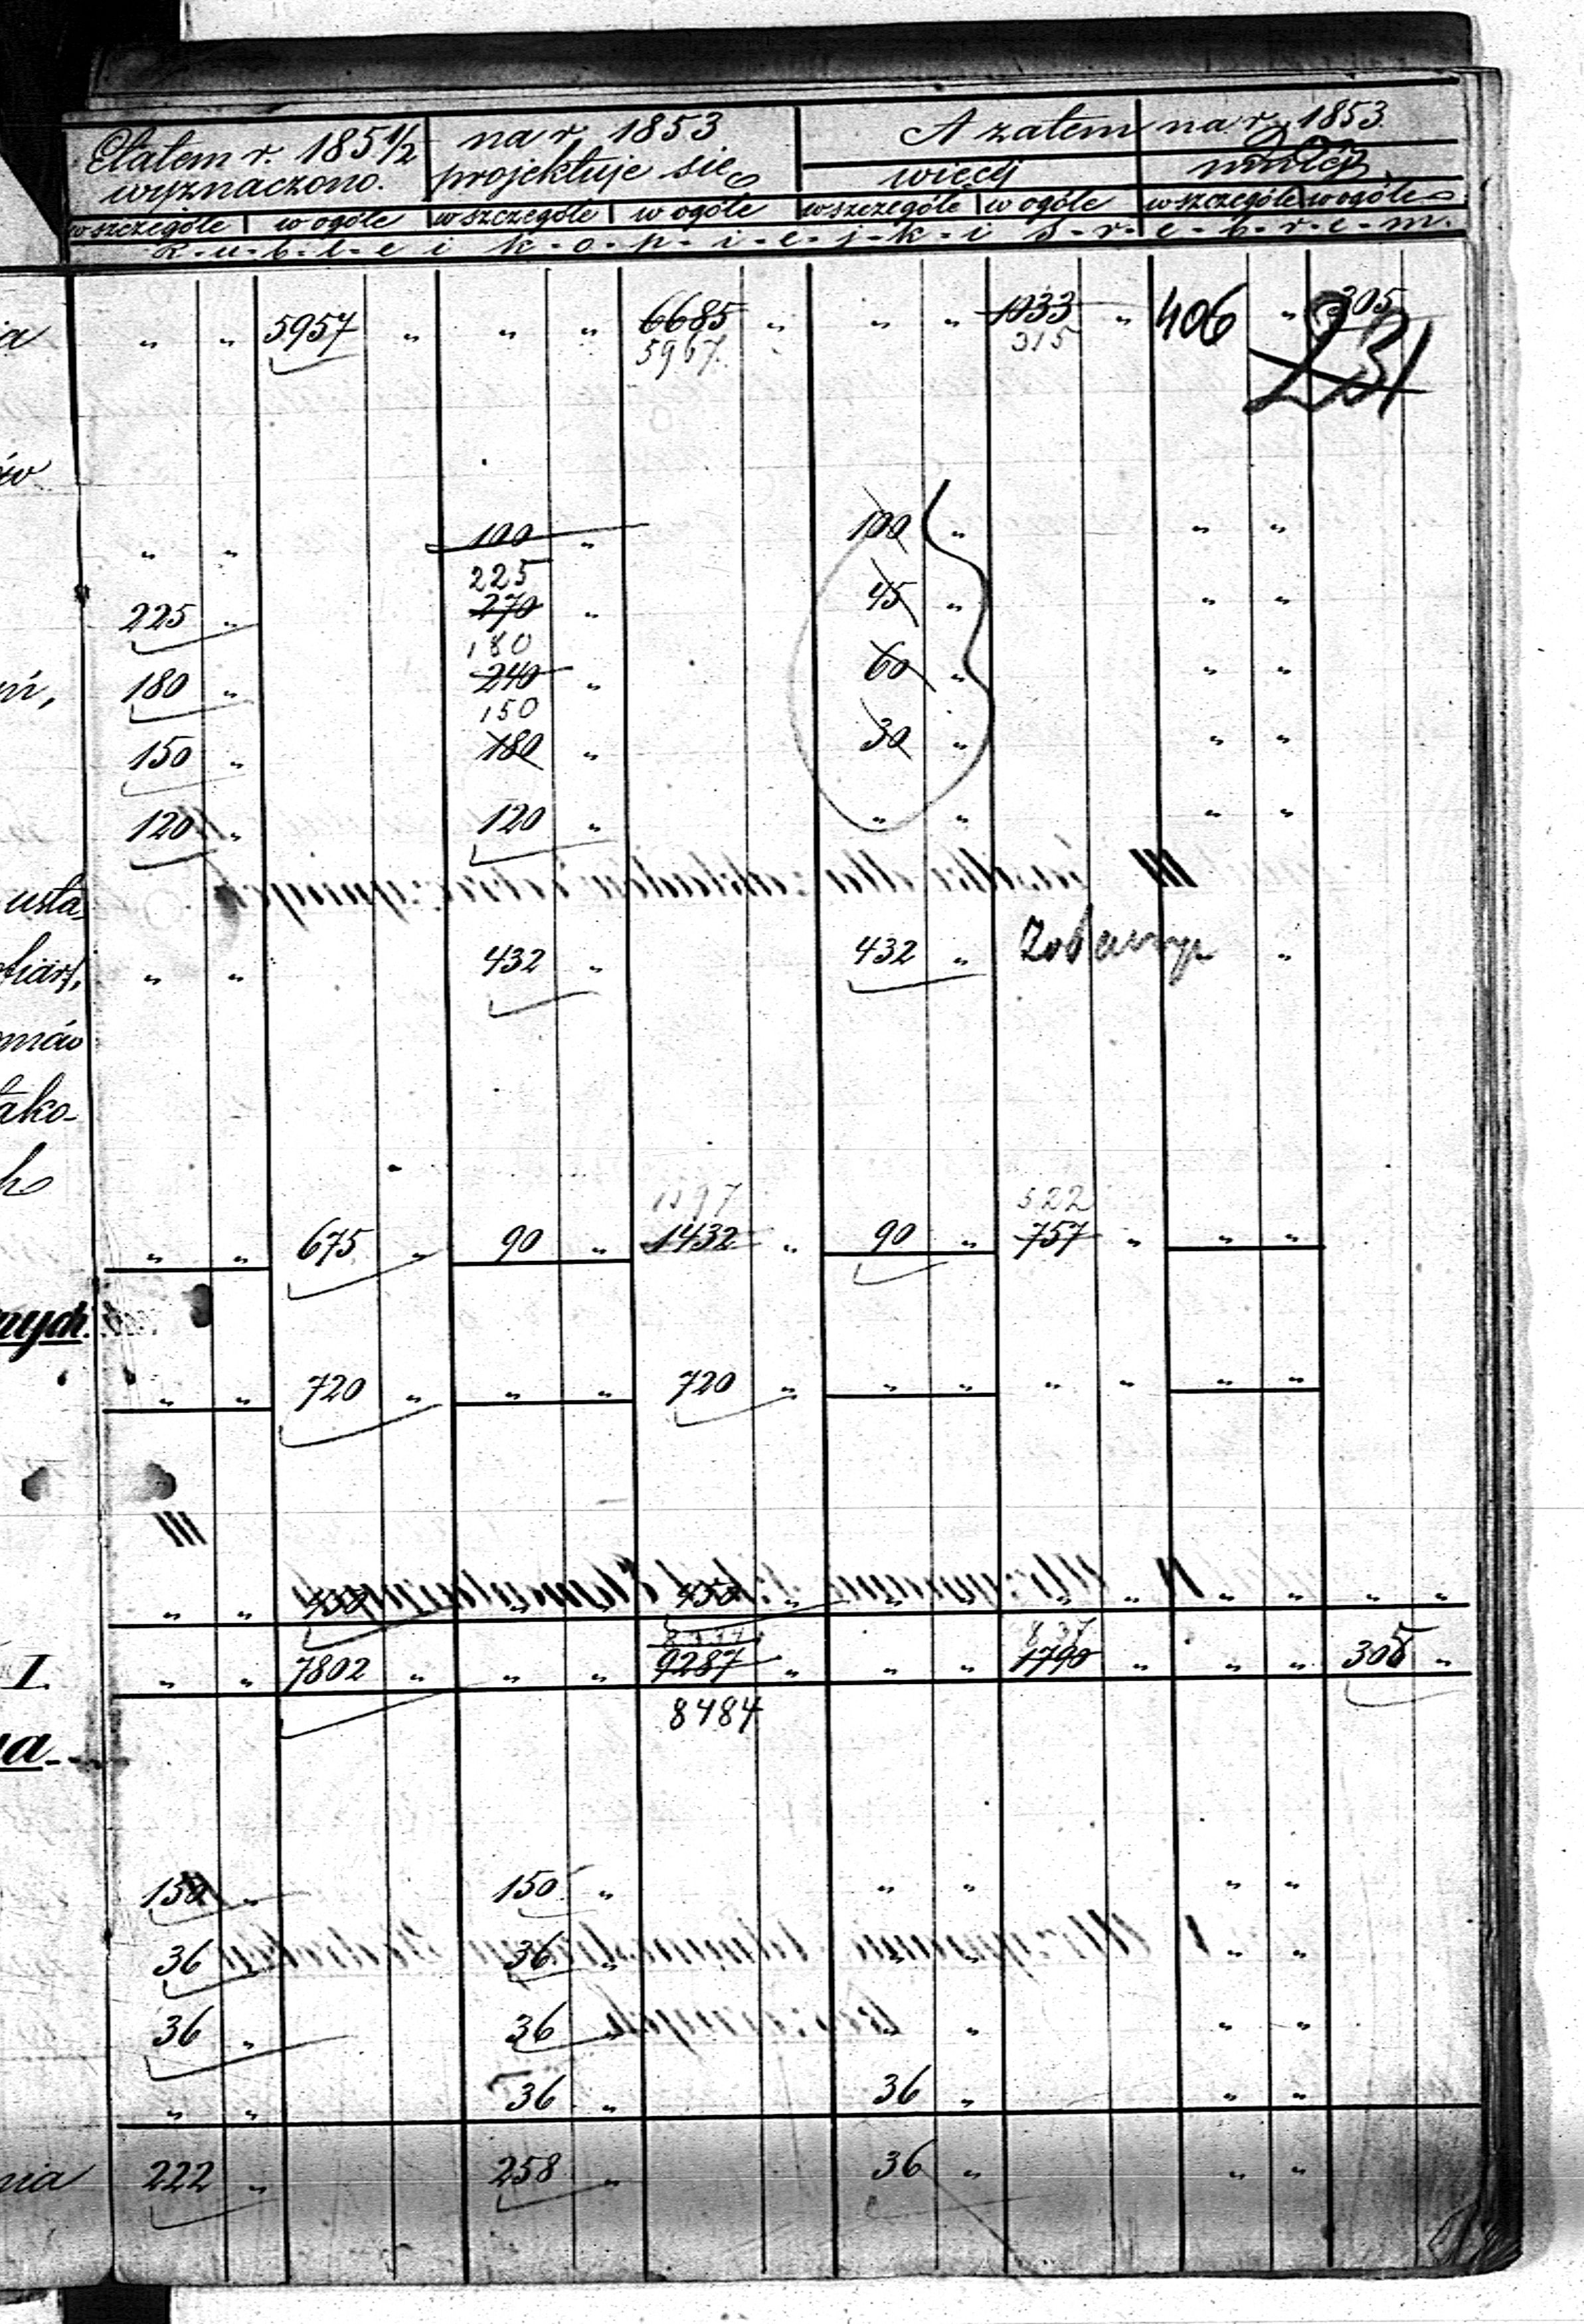 Etatem r. 1851/2 na r. 1853 A zatem na r. 1853
wyznaczono. projektuje się więcej mniej
w szczególe w ogóle w szczególe w ogóle w szczególe w ogóle w szczególe w ogóle
R-u-b-l-e i k-o-p-i-e-j-k-i s-r-e-b-r-e-m.
" " 5957 " " " 6685 " " " 1033 " 406 " 305
5967 315 231
" " 100 " 100 " " "
225
225 " 270 " 45 " " "
180
180 " 240 " 60 " " "
150
150 " 180 " 30 " " "
120 " 120 " " " " "
usta-
" " 432 " 432 " "
tako-
1597 522
" " 675 " 90 " 1432 " 90 " 757 " " "
nych.
" " 720 " " " 720 " " " " " " "
" " 450 " " " 450 " " " " " " " " "
8337 837
I. " " 7802 " " " 9287 " " " 1790 " " " 305 "
8484
150 " 150 " " " " "
36 " 36 " " " " "
36 " 36 " " " " "
" " 36 " 36 " " "
nia 222 " 258 " 36 " " "